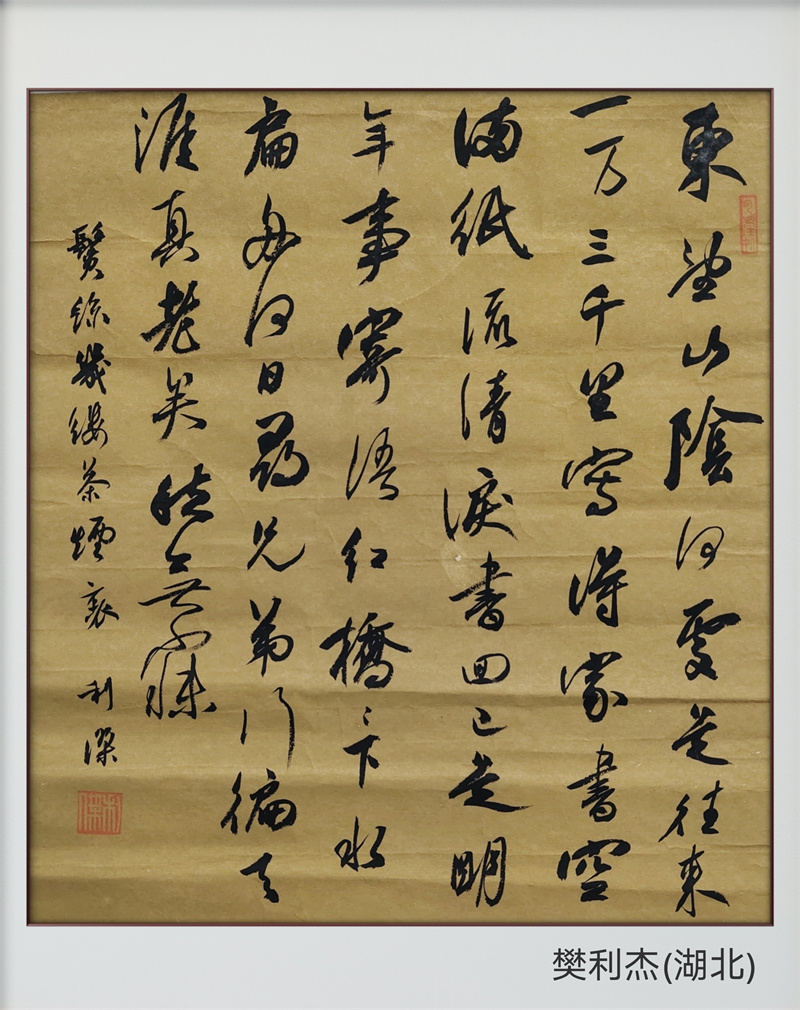 東望山陰何處是往来
一万三千里寫得家書空
滿紙流清淚書回已是明
年事寄語紅橋〻下水
扁舟何日尋兄弟行徧天
涯真老矣愁無寐
鬢絲幾縷茶煙裏 利傑
樊利杰(湖北)